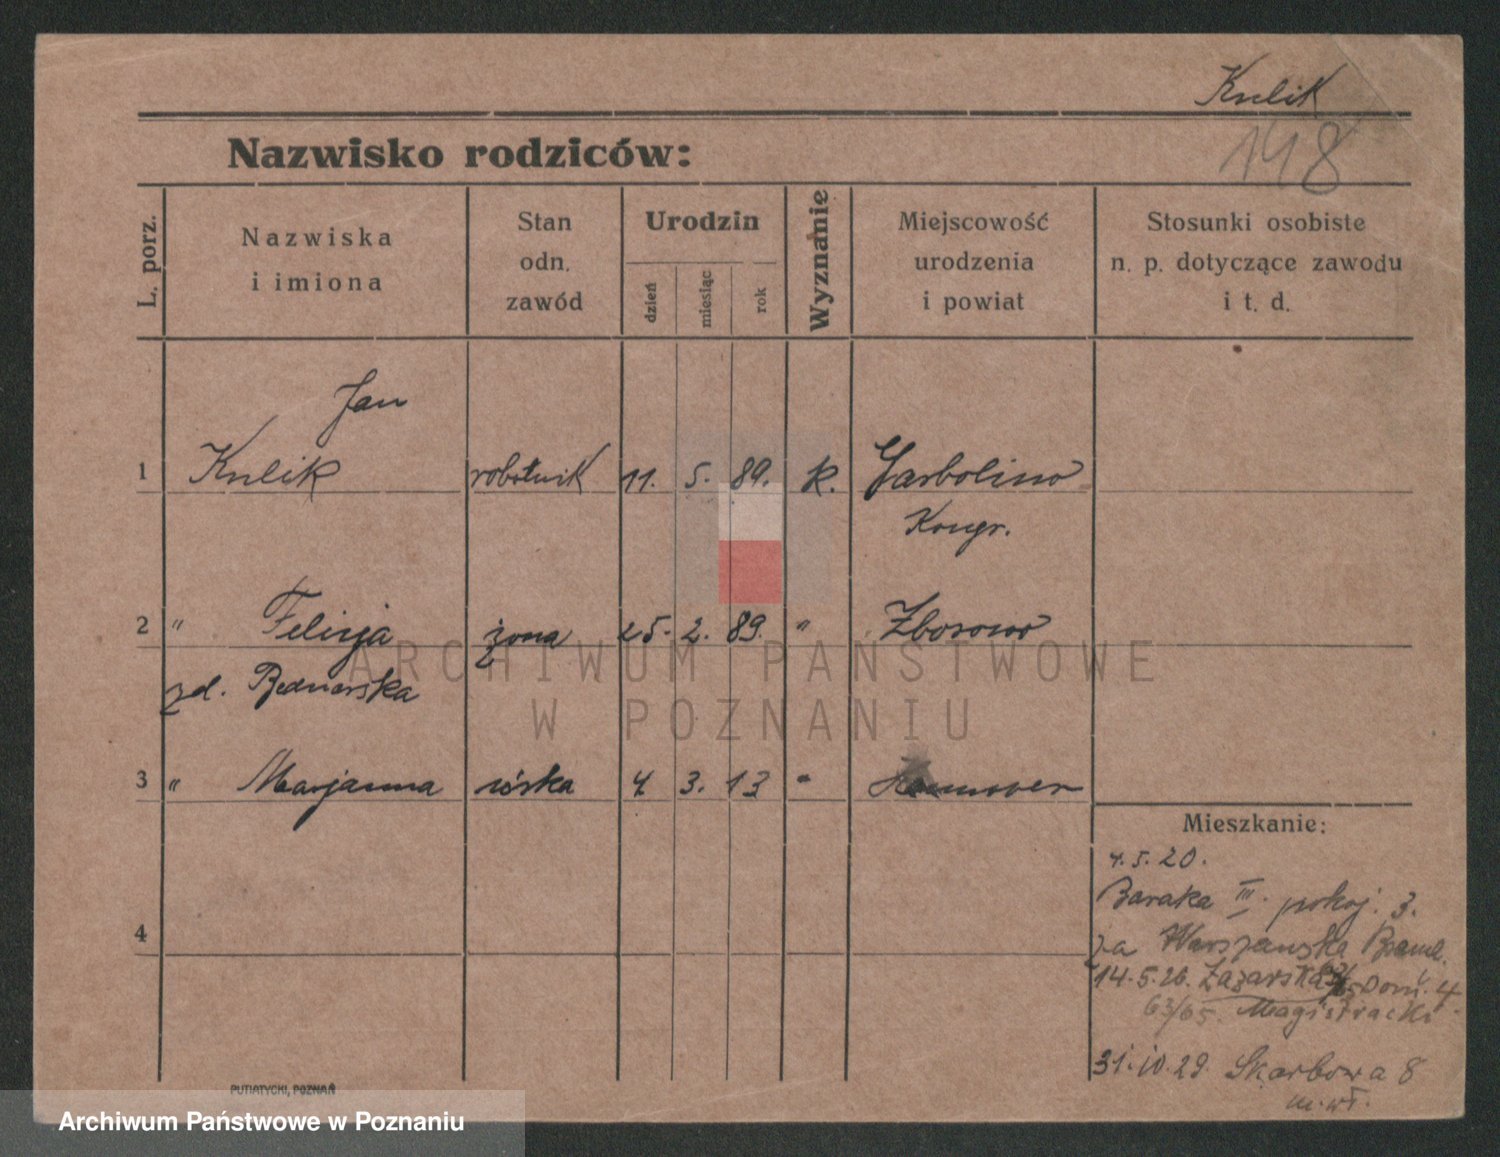 Kulik
148
Nazwisko rodziców:
L. porz.
Nazwiska
i imiona
Stan
odn.
zawód
Urodzin
dzień
miesiąc
rok
Wyznanie
Miejscowość
urodzenia
i powiat
Stosunki osobiste
n. p. dotyczące zawodu
i t. d.
Jan
1 Kulik robotnik 11. 5. 89. k. Garbolino
Kongr.
2 " Felicja żona 25. 2. 89. " Zborowo
zd. Bednarska
3 " Marjanna córka 4 3. 13 " Hannover
4
Mieszkanie:
4.5.20.
Baraka III. pokoj. 3.
za Warszawską Bramą.
14.5.26. Łazarska Dom. 4
63/65. Magistracki
31.10.29. Skarbowa 8
m. wł.
PUTIATYCKI, POZNAŃ
ARCHIWUM PAŃSTWOWE
W POZNANIU
Archiwum Państwowe w Poznaniu